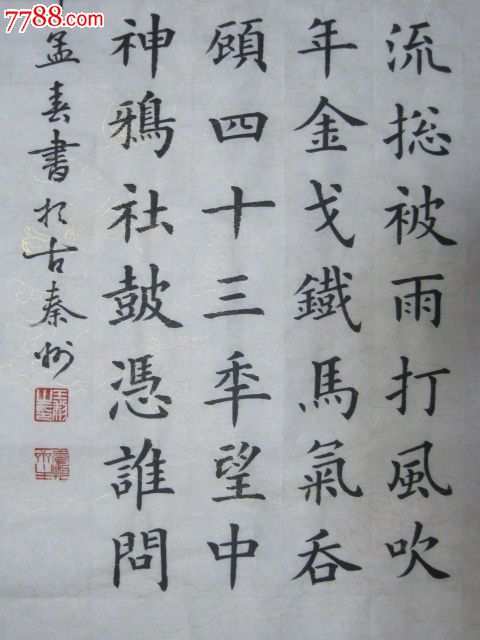 7788.com
流総被雨打風吹
年金戈鐵馬氣吞
頋四十三年望中
神鴉社鼓憑誰問
孟春書於古秦州